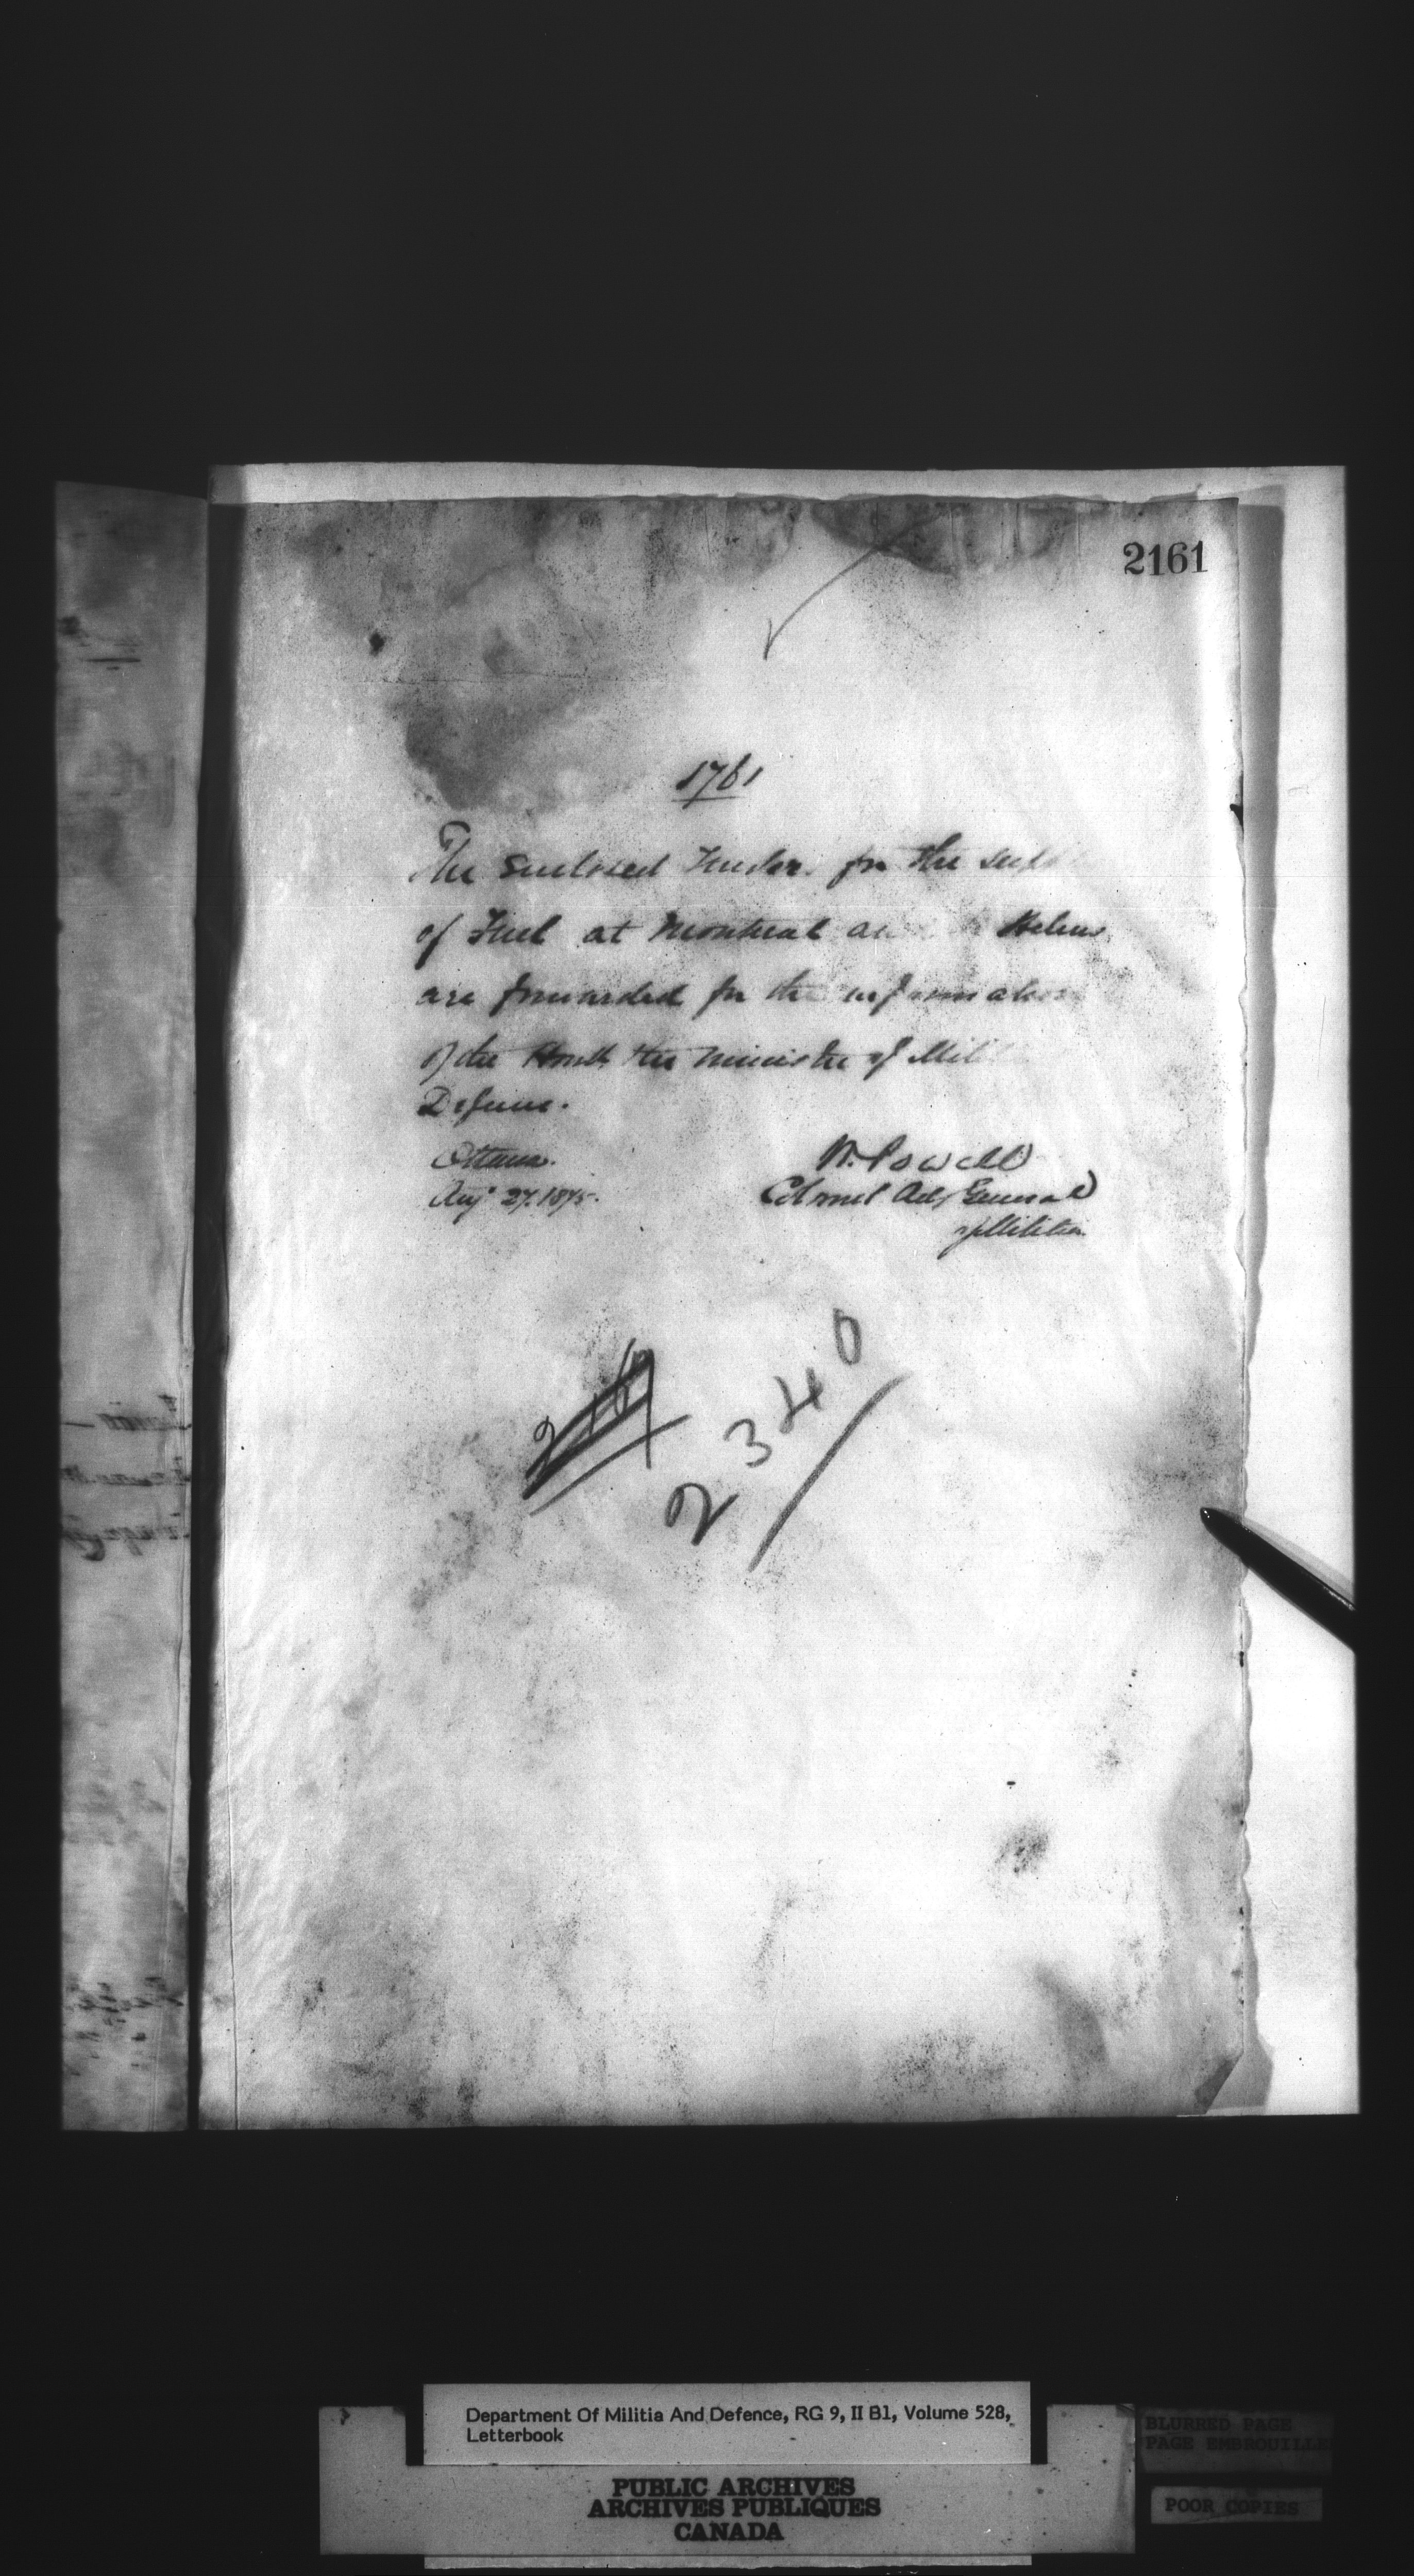 2161
1761
The Enclosed Tender for the
of Fuel at Montreal Helens
are forwarded for the information
of the Honble the Minister of
Defence.
Ottawa.
Aug 27. 1875.
W. Powell
Colonel Adj General
of Militia
2340
Department Of Militia And Defence, RG 9, II B1, Volume 528,
Letterbook
BLURRED PAGE
PAGE EMBROUILLE
POOR COPIES
PUBLIC ARCHIVES
ARCHIVES PUBLIQUES
CANADA